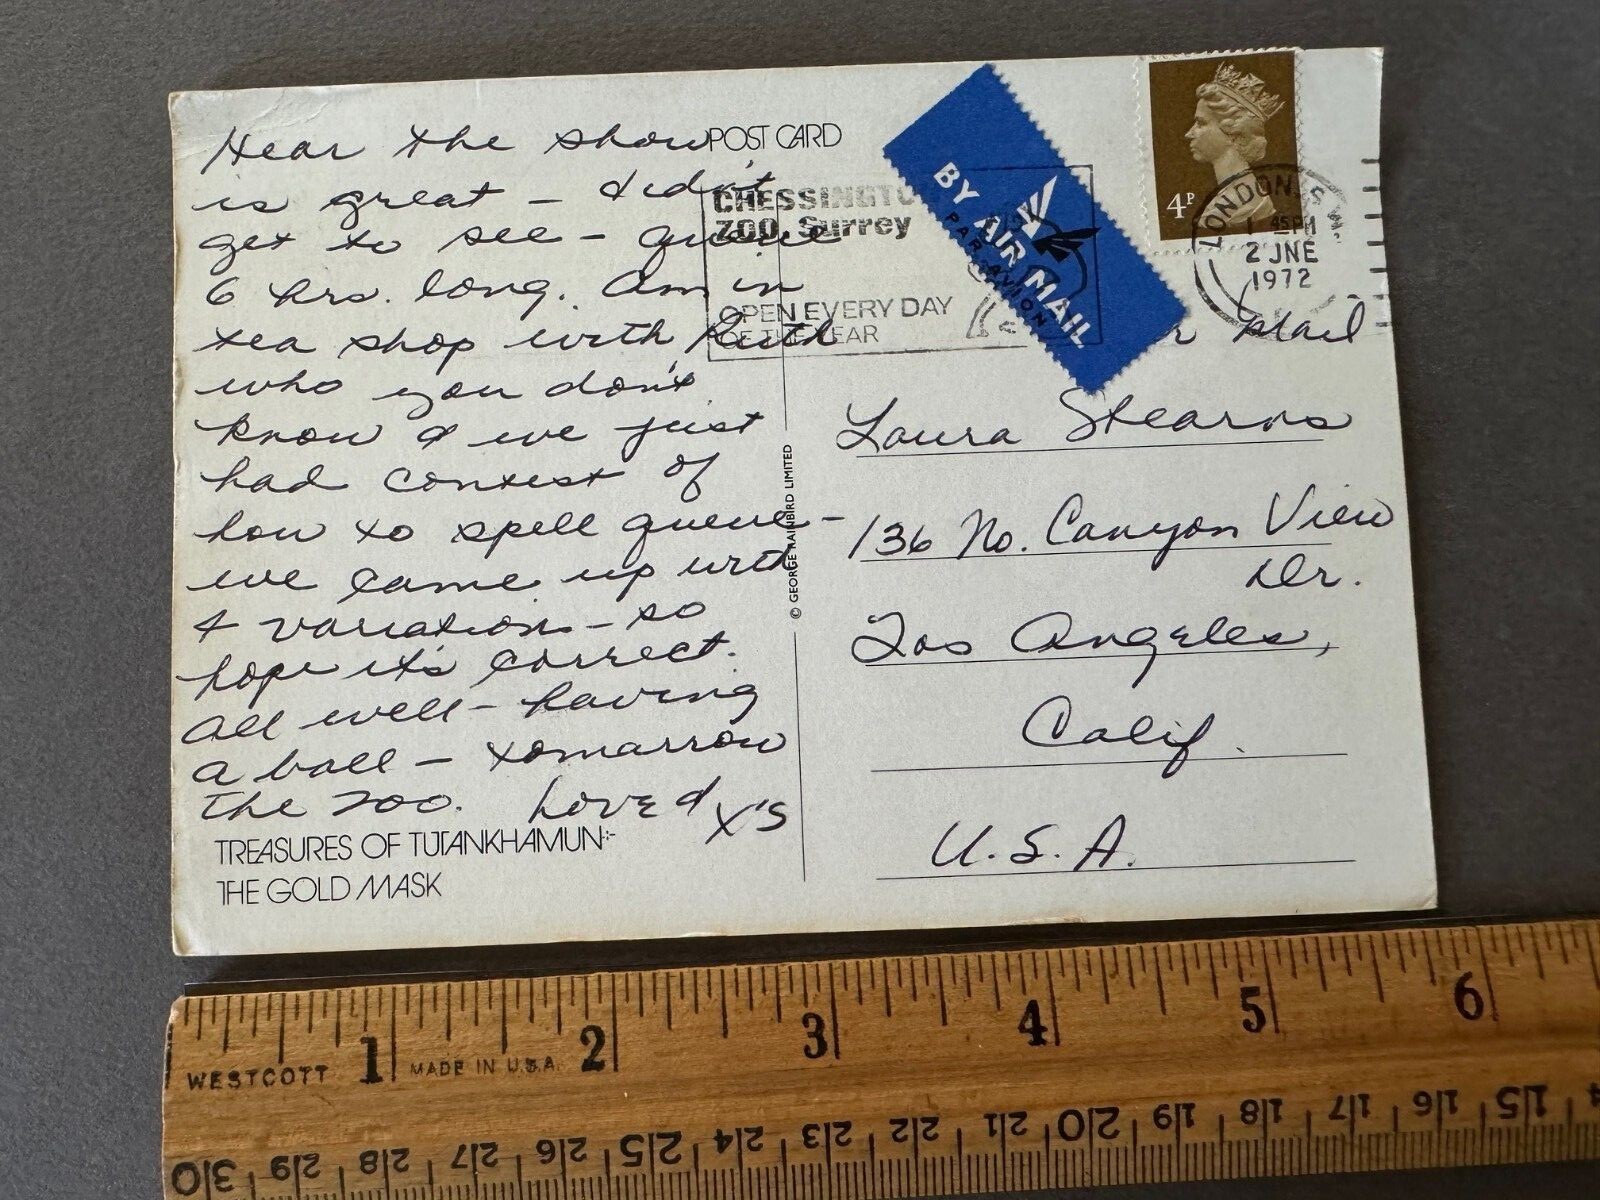 Hear the show
is great - didn't
get to see - queue
6 hrs. long. Am in
tea shop with Ruth
who you don't
know & we just
had contest of
how to spell queue -
we came up with
4 variations - so
hope it's correct.
All well - having
a ball - tomarrow
the zoo. Love & X's
TREASURES OF TUTANKHAMUN:-
THE GOLD MASK
POST CARD
© GEORGE RAINBIRD LIMITED
CHESSINGTO
ZOO Surrey
OPEN EVERY DAY
OF THE YEAR
BY AIR MAIL
PAR AVION
4P
LONDON. S
1 45 PM
2 JNE
1972
r Mail
Laura Stearns
136 No. Canyon View
Dr.
Los Angeles,
Calif.
U.S.A.
1 2 3 4 5 6
WESTCOTT MADE IN U.S.A.
30 29 28 27 26 25 24 23 22 21 20 19 18 17 16 15